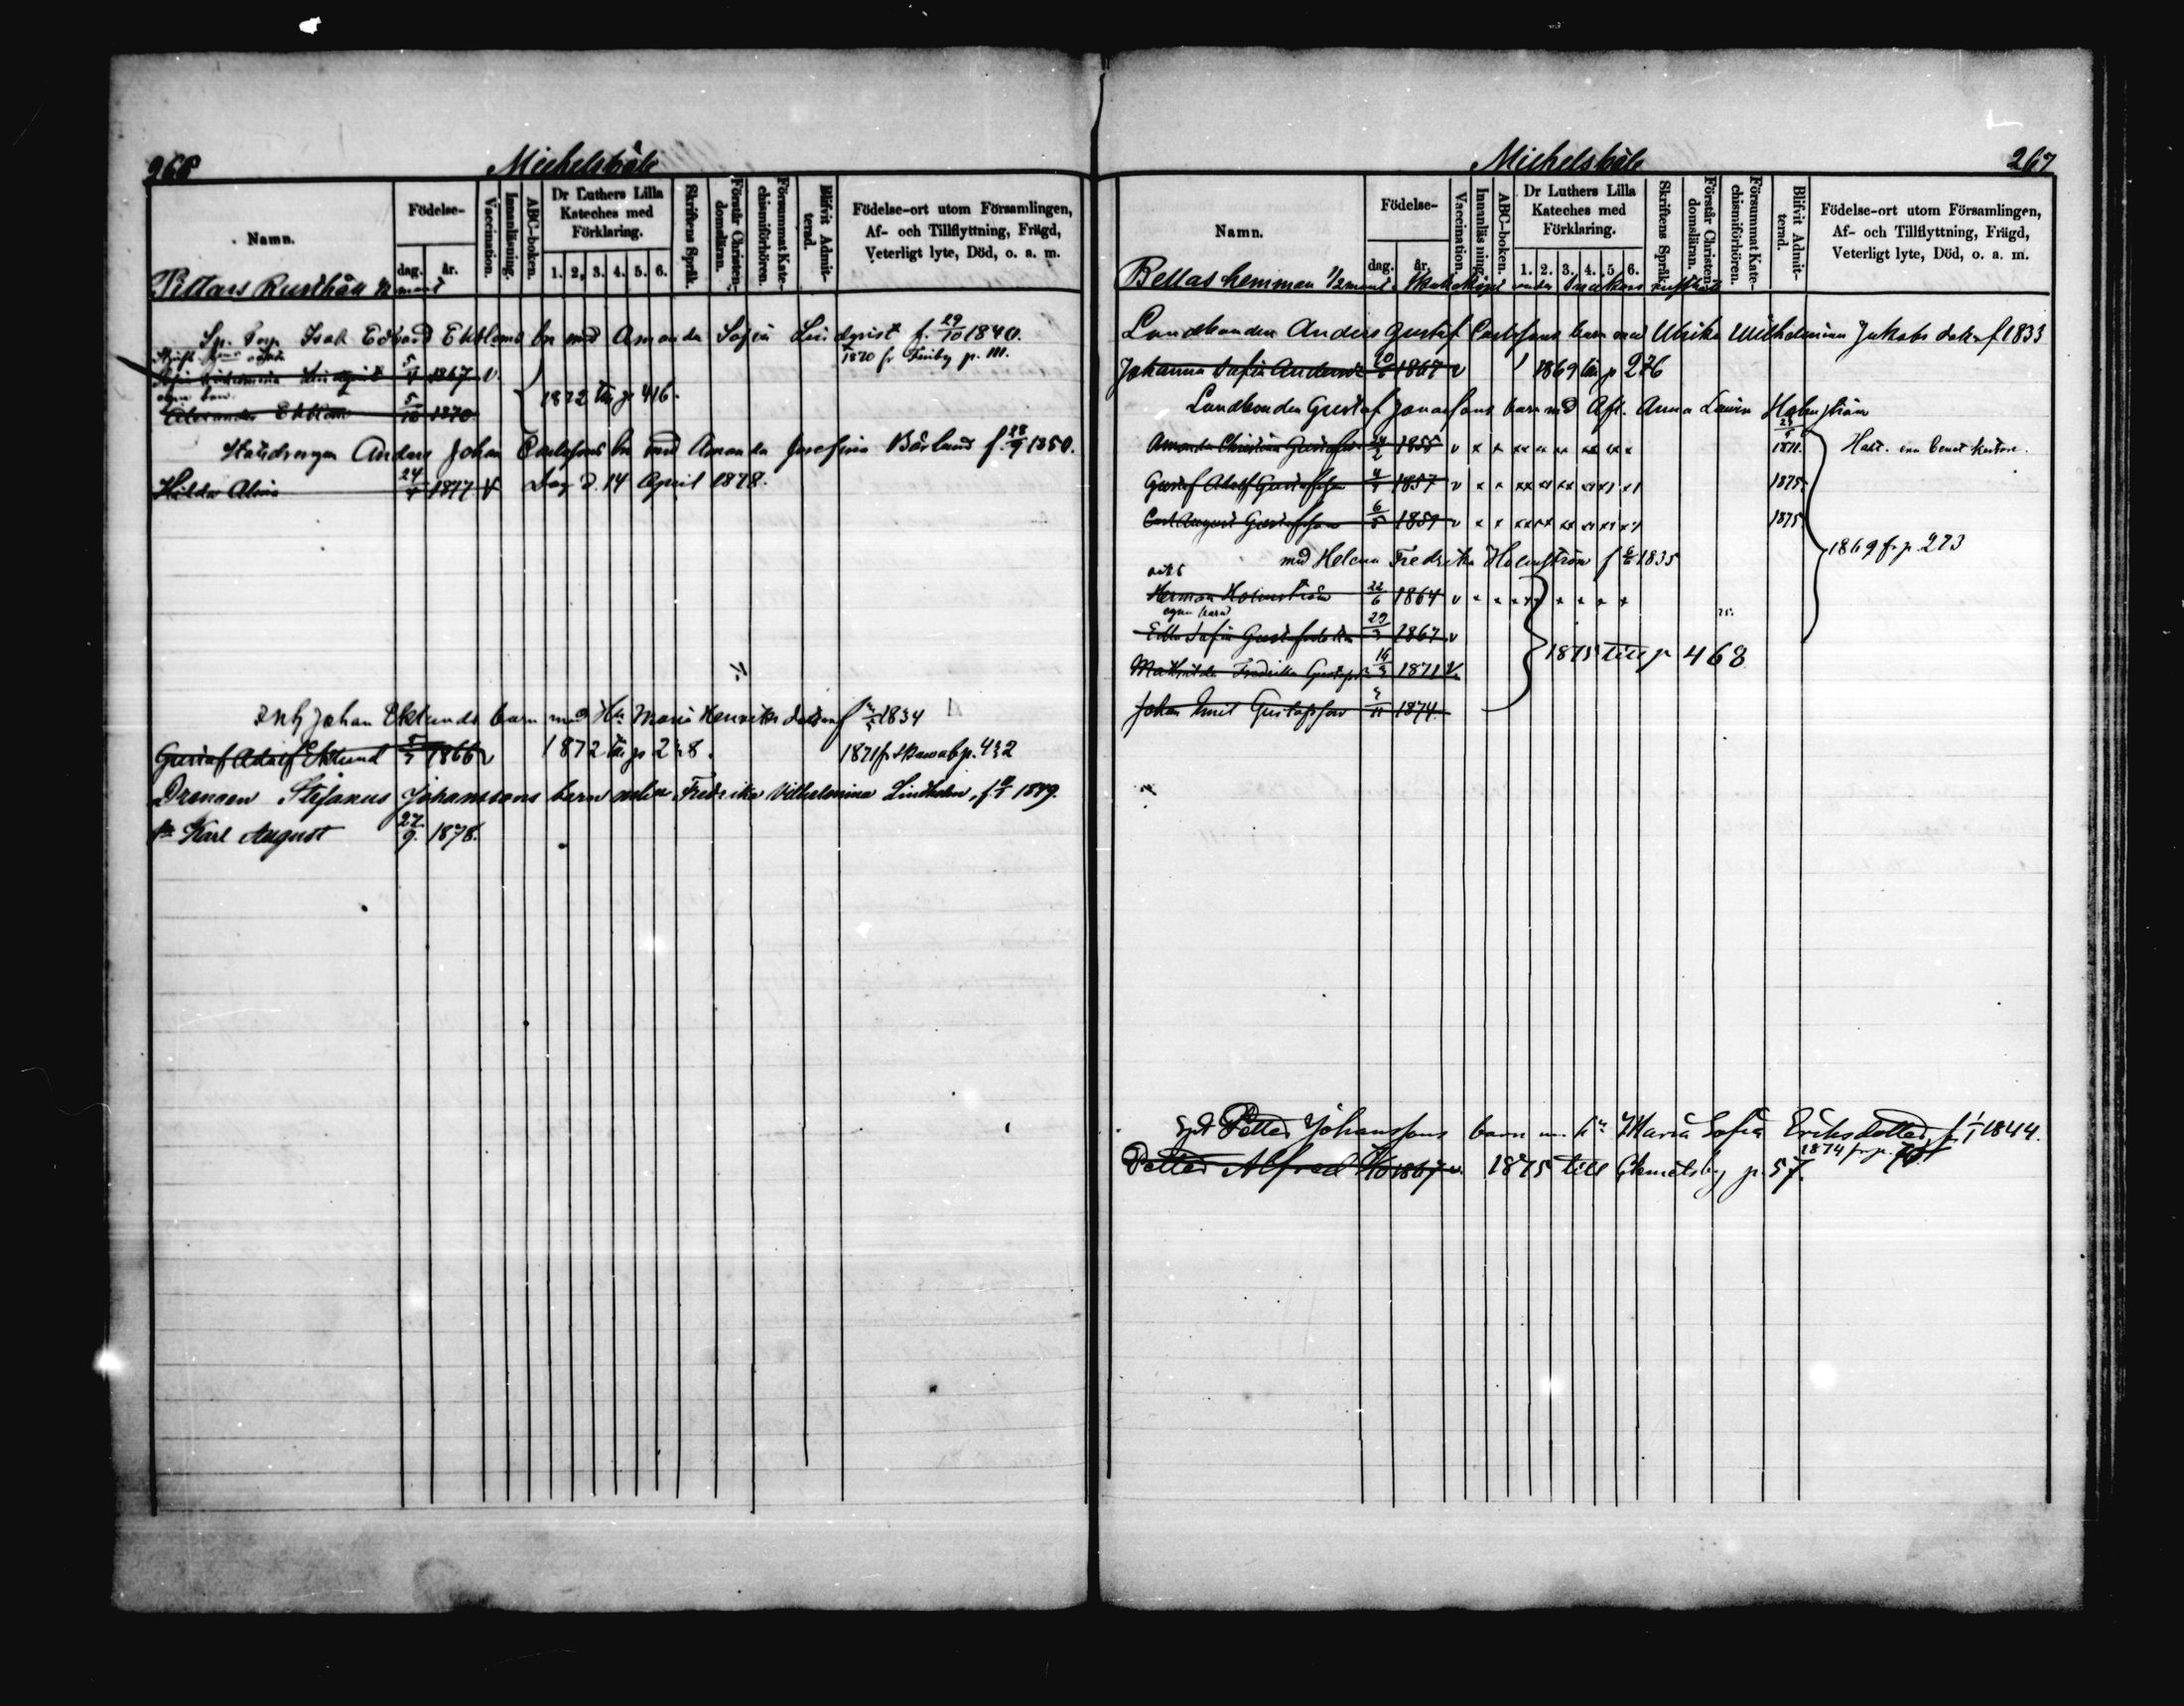 266 Michelsböle
Namn. Födelse- dag. år. Vaccination. Innanläsning. ABC-boken. Dr Luthers Lilla Kateches med Förklaring. 1. 2. 3. 4. 5. 6. Skriftens Språk. Förstår Christendomsläran. Försummat Katechismiförhören. Blifvit Admitterad. Födelse-ort utom Församlingen, Af- och Tillflyttning, Frägd, Veterligt lyte, Död, o. a. m.
Pettars Rusthåll 1/2 mant
Isak Edvard Ekbloms bn med Amanda Sofia Lindqvist f. 29/10 1840.
1870 fr p. 111.
Lindqvist 5/4 1867 v
egna barn
Alexander Ekblom 5/10 1870
1872 till p 416.
Anders Johan Carlssons bn med Amanda Josefina Bärlund f. 28/9 1850.
Hilda Alina 24/4 1877 v Dog d. 14 April 1878.
Inh Johan Eklunds barn med Hu Maria Henriksdotter f 1834
Gustaf Adolf Eklund 5/3 1866 v 1872 till p 248. 1871 fr p. 432
Drengen Stefanus Johanssons barn Fredrika Vilhelmina Lindholm, f. 1849.
Karl August 27/9. 1878.
Michelsböle 267
Namn. Födelse- dag. år. Vaccination. Innanläsning. ABC-boken. Dr Luthers Lilla Kateches med Förklaring. 1. 2. 3. 4. 5. 6. Skriftens Språk. Förstår Christendomsläran. Försummat Katechismiförhören. Blifvit Admitterad. Födelse-ort utom Församlingen, Af- och Tillflyttning, Frägd, Veterligt lyte, Död, o. a. m.
Bellas hemman 1/2 mant. under
Landbonden Anders Gustaf Carlssons barn med Ulrika Wilhelmina Jakobsdotter f 1833
Johanna Sofia Andersd. 20/6 1867 v 1869 till p 276
Landbonden Gustaf Jonassons barn med Afl. Anna Lovisa Holmström
Amanda Christina Gustafsd. 24/2 1855 v x x xx xx xx xx 1871.
Gustaf Adolf Gustafsson 4/4 1857 v x x xx xx xx xx 1875
Carl August Gustafsson 6/5 1859 v x x xx xx xx xx 1875
1869 fr p. 273
med Helena Fredrika Holmström f 1835
Herman Holmström 22/6 1864 v
egna barn
Edla Sofia Gustafsdotter 29/3 1867 v
1875 till p 468
Mathilda Fredrika Gustafsd. 16/3 1871 v
Johan Emil Gustafsson 1874
Petter Johanssons barn m. Hu Maria Sofia Eriksdotter f 1/1 1844.
1874 fr p.
Petter Alfred 1867 v. 1875 till p. 57.